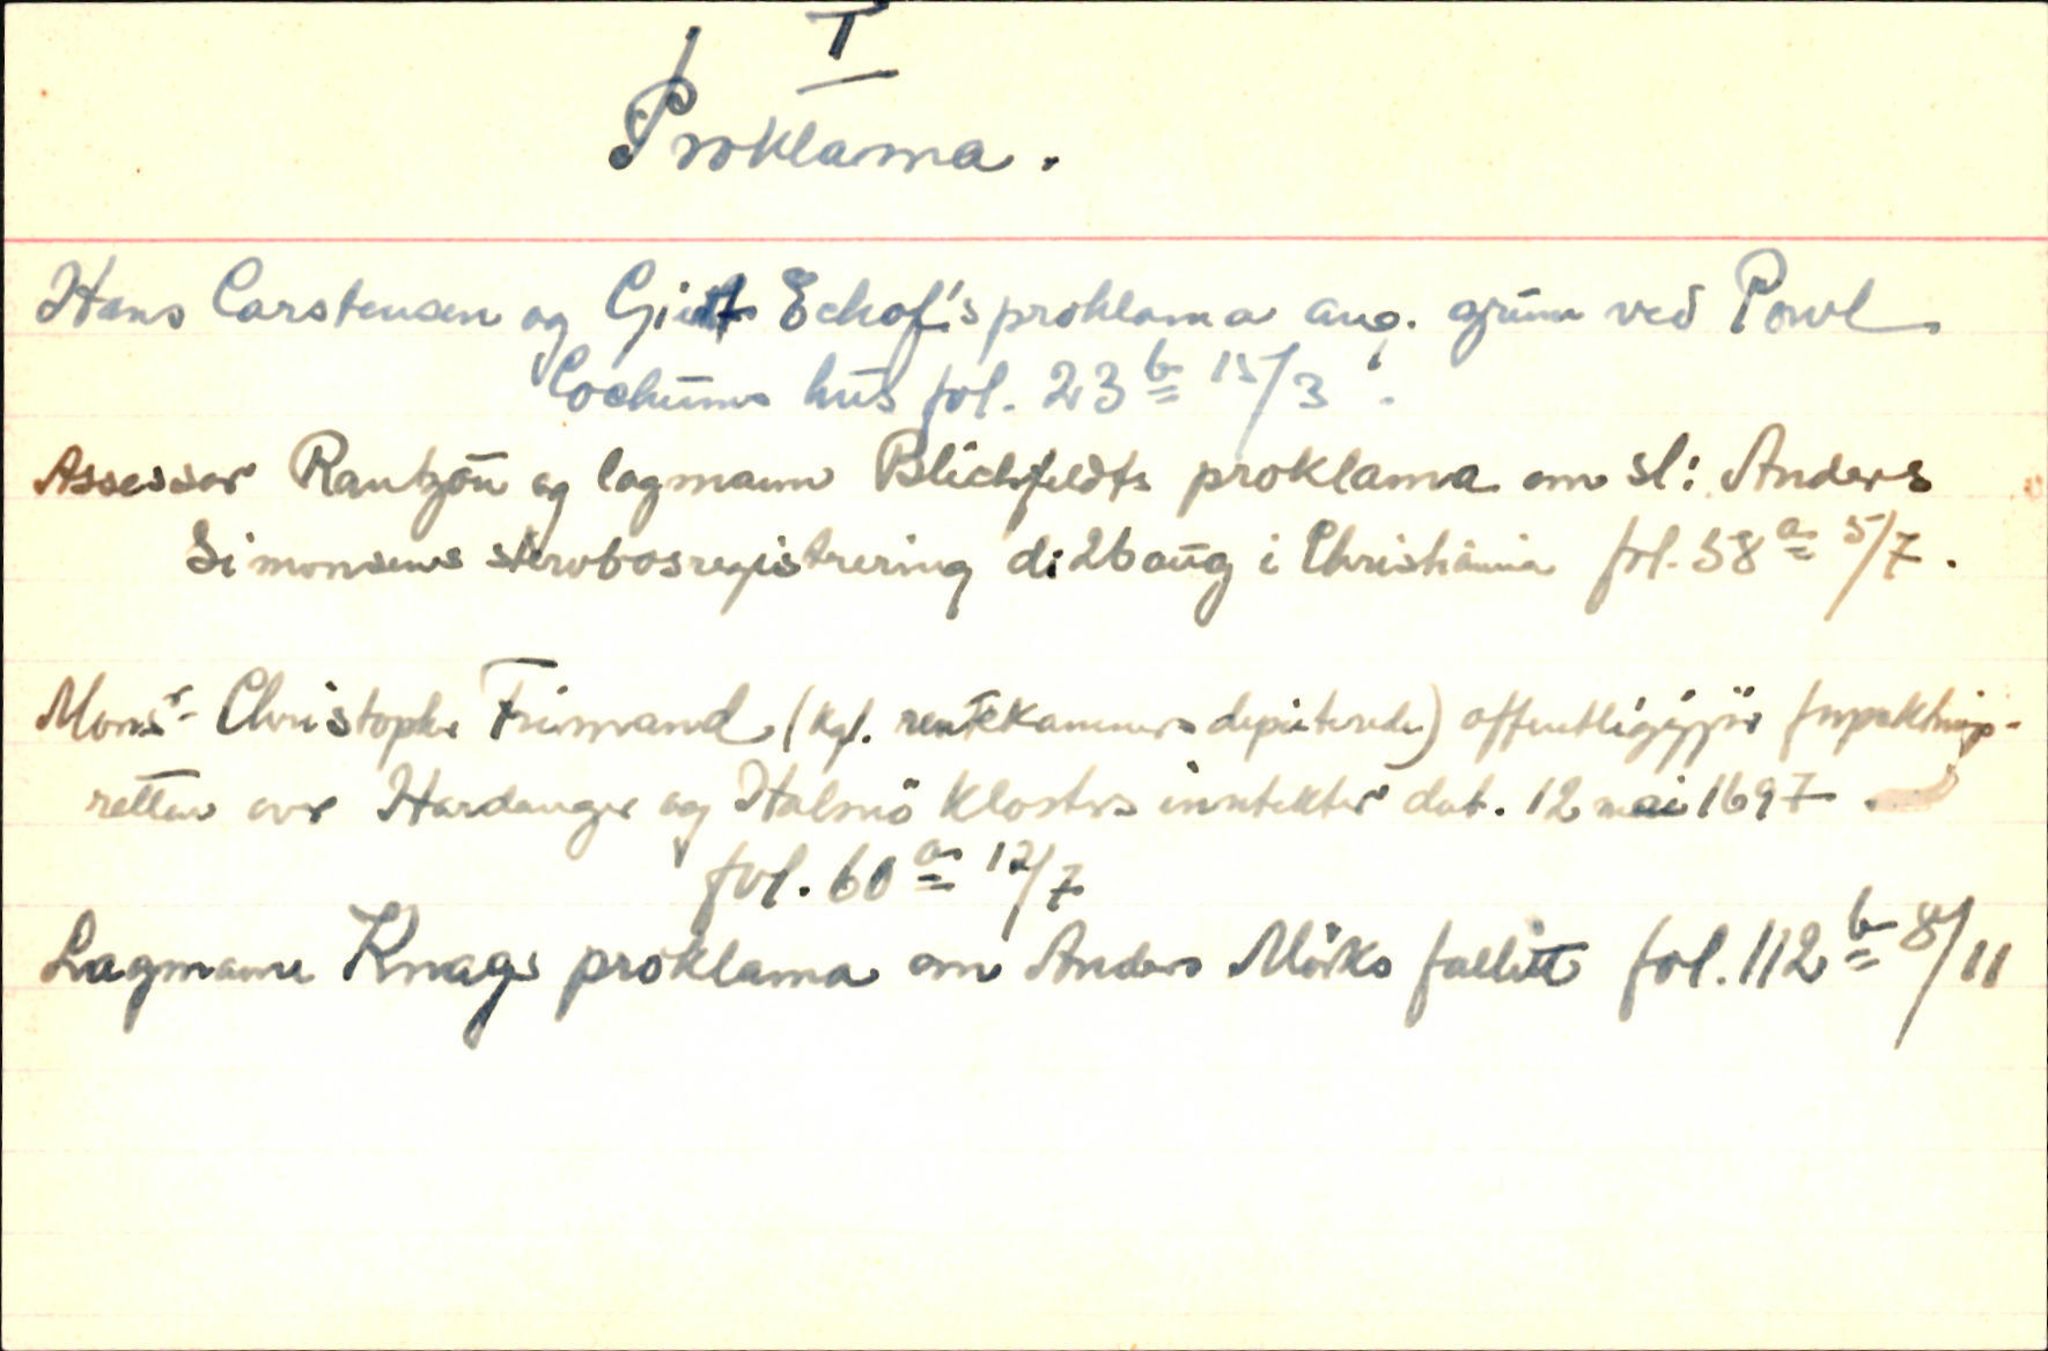 I
Proklama.
Hans Carstensen og Giert Eckof's proklama ang. grunn ved Powl
Cochums hus fol. 23 b 15/3.
Assessor Rantzou og lagmann Blichfeldts proklama om sl: Anders
Simonsens stervbosregistrering d: 26 aug i Christiania fol. 58 a 5/7.
Mons.r Christopher Friimand (kgl. rentekammers deputerede) offentliggjör forpaktnings-
retten over Hardanger og Halsnö klosters inntekter dat. 12 mai 1697.
fol. 60 a 12/7
Lagmann Knags proklama om Anders Mörks fallitt fol. 112 b 8/11